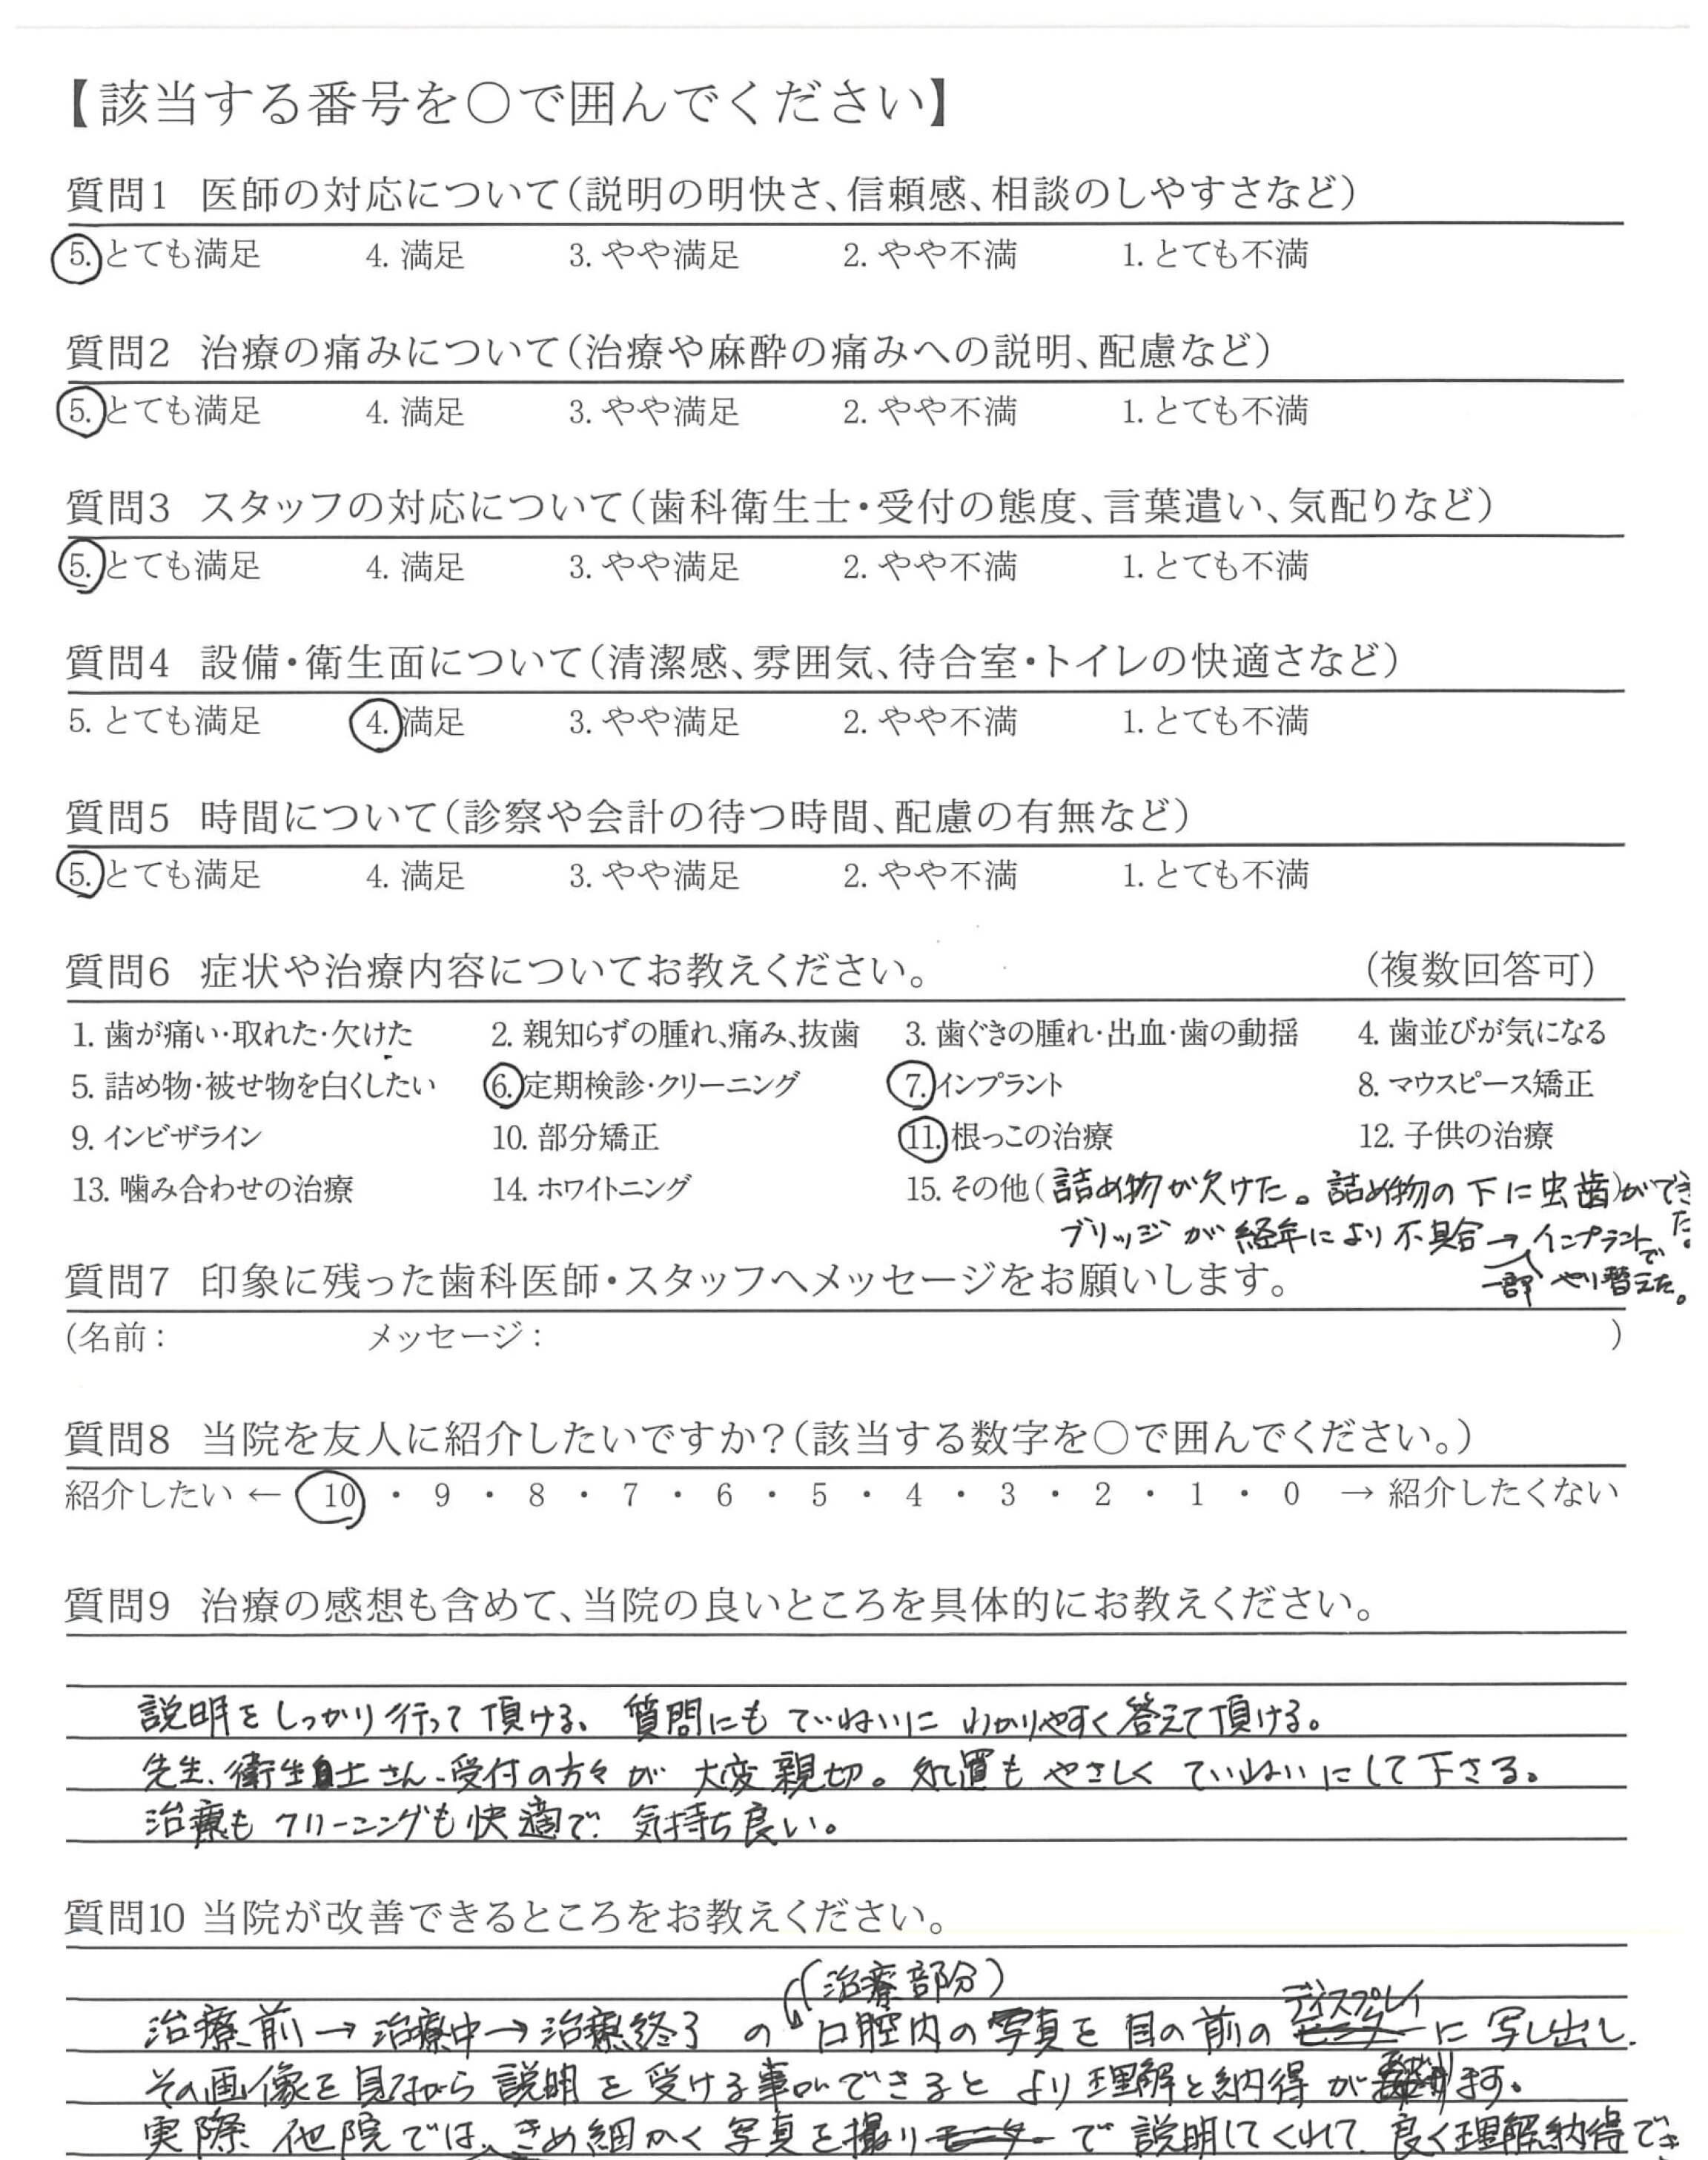 【該当する番号を○で囲んでください】
質問1 医師の対応について（説明の明快さ、信頼感、相談のしやすさなど）
5. とても満足 4. 満足 3. やや満足 2. やや不満 1. とても不満
質問2 治療の痛みについて（治療や麻酔の痛みへの説明、配慮など）
5. とても満足 4. 満足 3. やや満足 2. やや不満 1. とても不満
質問3 スタッフの対応について（歯科衛生士・受付の態度、言葉遣い、気配りなど）
5. とても満足 4. 満足 3. やや満足 2. やや不満 1. とても不満
質問4 設備・衛生面について（清潔感、雰囲気、待合室・トイレの快適さなど）
5. とても満足 4. 満足 3. やや満足 2. やや不満 1. とても不満
質問5 時間について（診察や会計の待つ時間、配慮の有無など）
5. とても満足 4. 満足 3. やや満足 2. やや不満 1. とても不満
質問6 症状や治療内容についてお教えください。 （複数回答可）
1. 歯が痛い・取れた・欠けた 2. 親知らずの腫れ、痛み、抜歯 3. 歯ぐきの腫れ・出血・歯の動揺 4. 歯並びが気になる
5. 詰め物・被せ物を白くしたい 6. 定期検診・クリーニング 7. インプラント 8. マウスピース矯正
9. インビザライン 10. 部分矯正 11. 根っこの治療 12. 子供の治療
13. 噛み合わせの治療 14. ホワイトニング 15. その他（詰め物が欠けた。詰め物の下に虫歯）ができた。
ブリッジが経年により不具合→インプラントで
一部 やり替えた。
質問7 印象に残った歯科医師・スタッフへメッセージをお願いします。
（名前： メッセージ： ）
質問8 当院を友人に紹介したいですか？（該当する数字を○で囲んでください。）
紹介したい ← 10 ・ 9 ・ 8 ・ 7 ・ 6 ・ 5 ・ 4 ・ 3 ・ 2 ・ 1 ・ 0 → 紹介したくない
質問9 治療の感想も含めて、当院の良いところを具体的にお教えください。
説明をしっかり行って頂ける、質問にもていねいにわかりやすく答えて頂ける。
先生、衛生士さん、受付の方々が大変親切。処置もやさしくていねいにして下さる。
治療もクリーニングも快適で、気持ち良い。
質問10 当院が改善できるところをお教えください。
（治療部分）
治療前→治療中→治療終了の口腔内の写真を目の前のディスプレイに写し出し、
その画像を見ながら説明を受ける事ができるとより理解と納得がます。
実際他院では、きめ細かく写真を撮りモニターで説明してくれて、良く理解納得でき